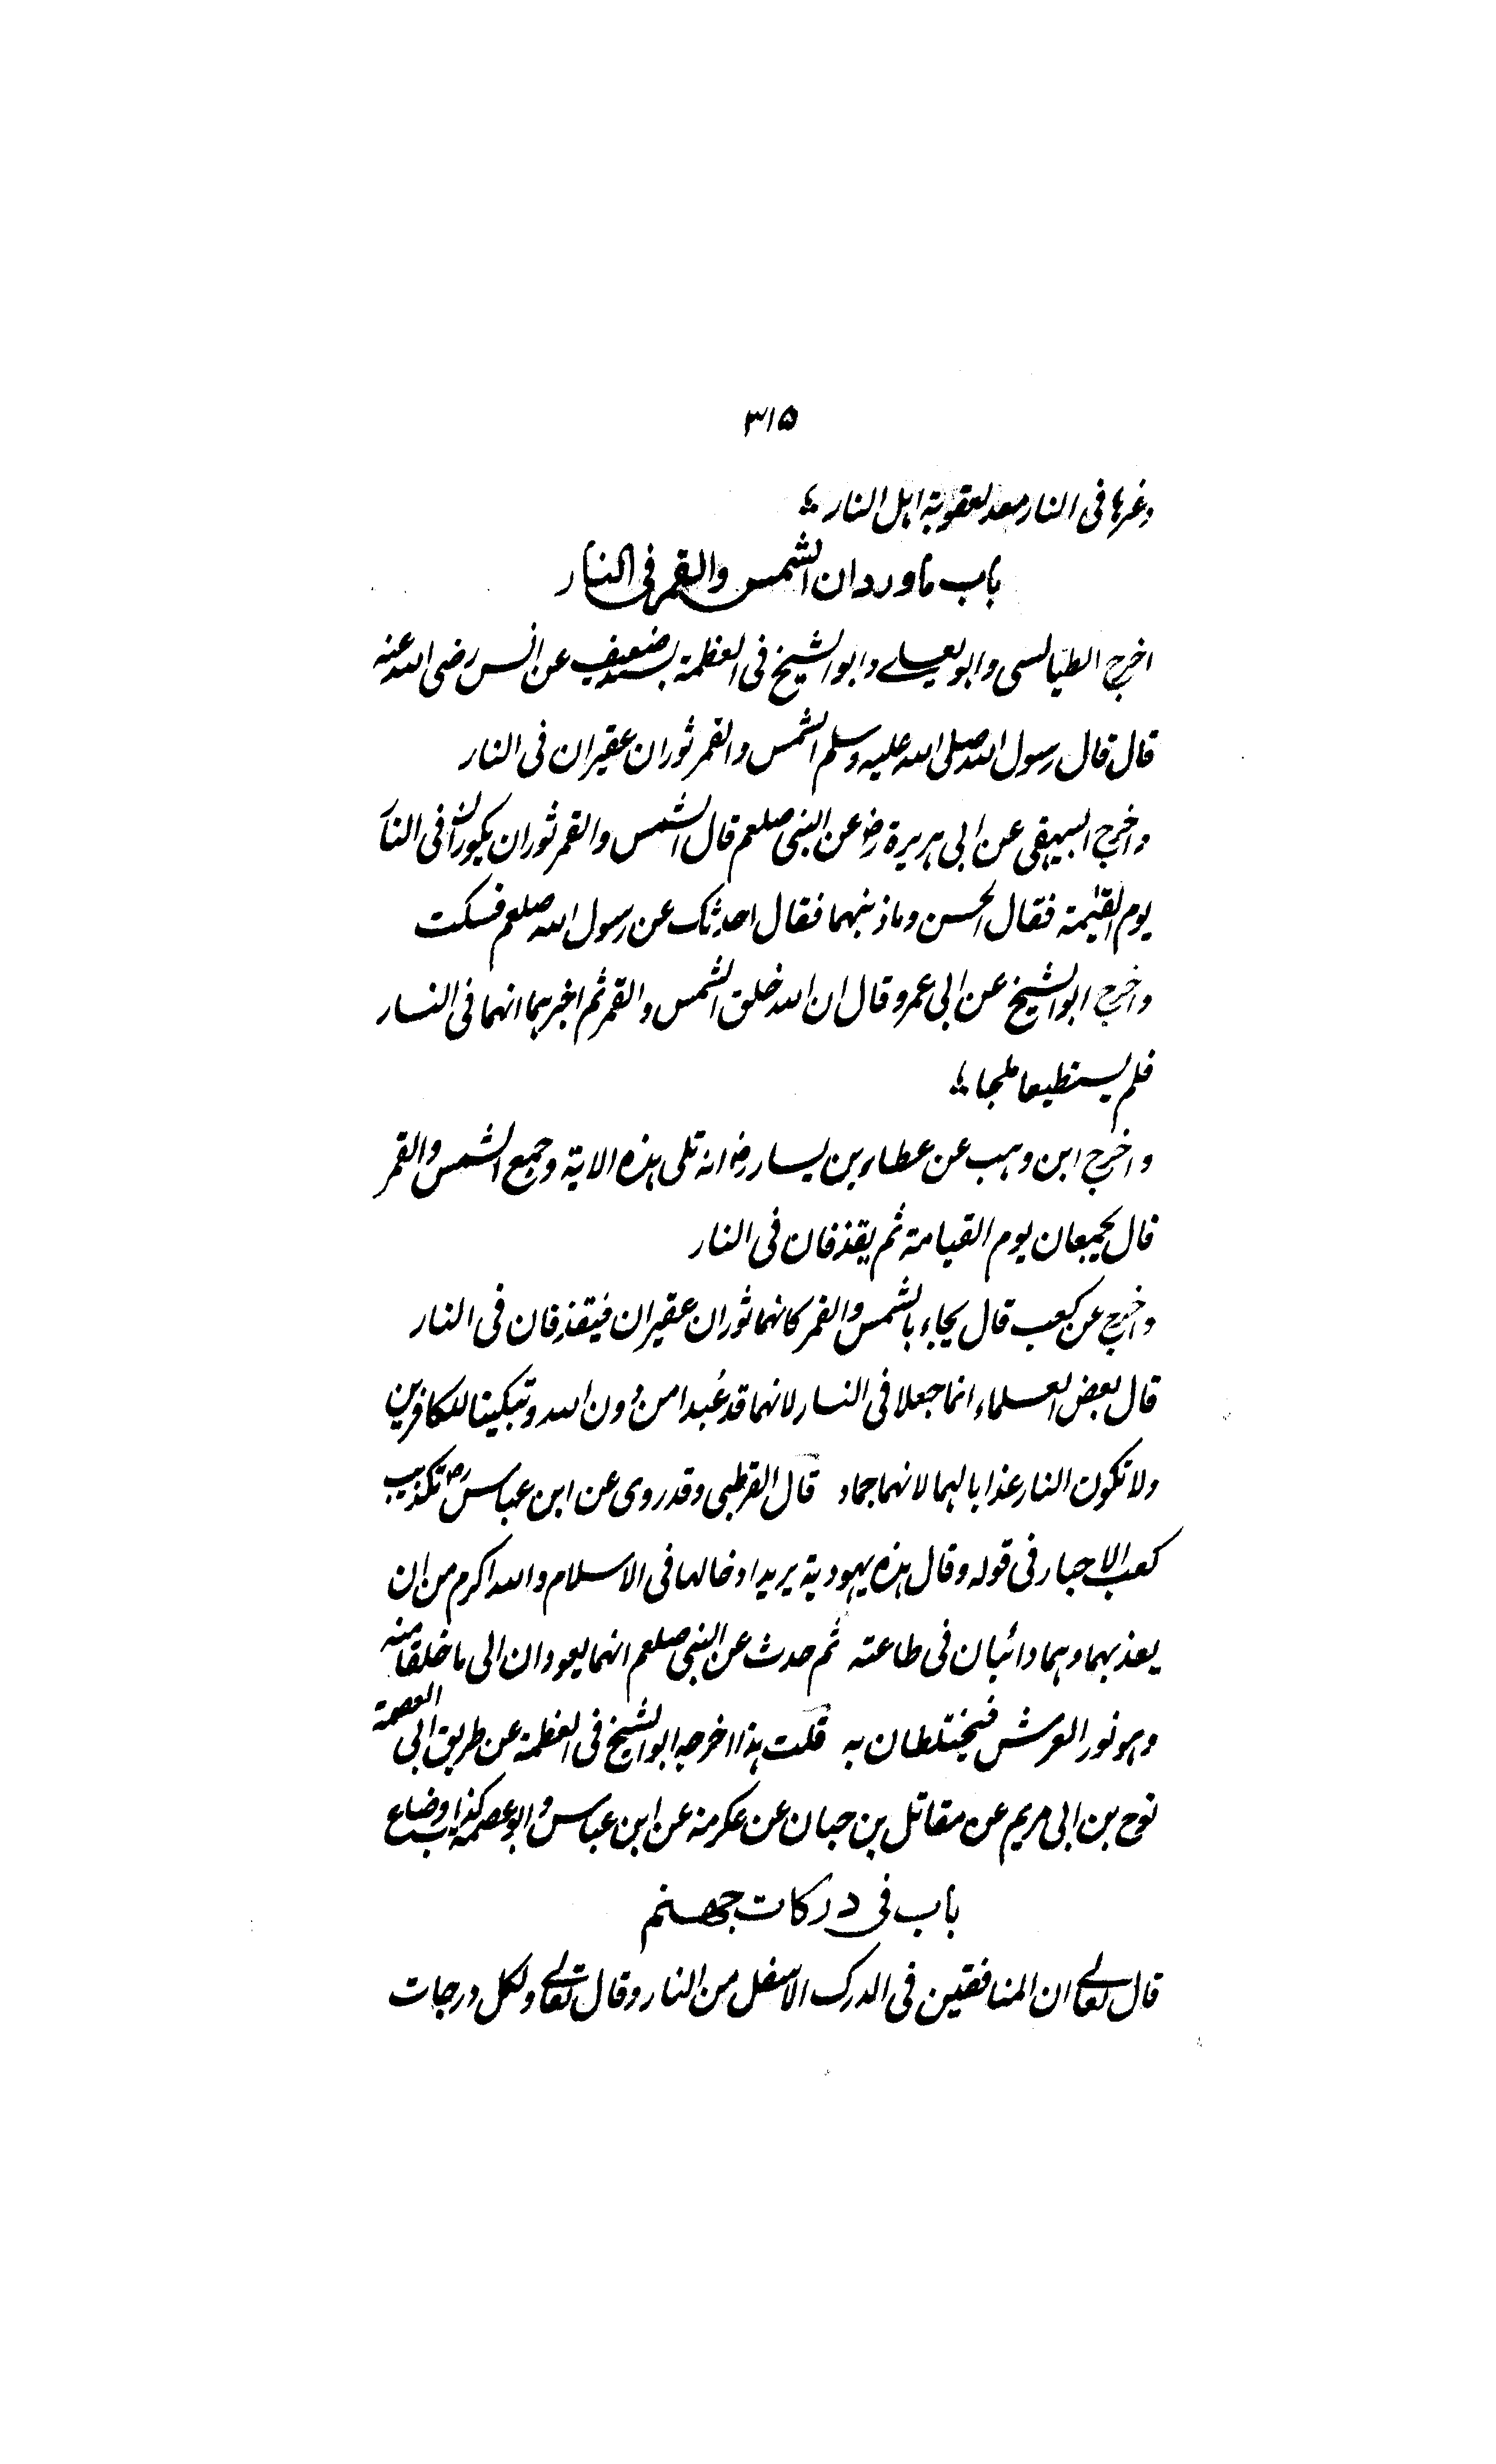 ۳۱۵
وغرها فی النار معد لعقوبة اهل النار ؞
باب ما ورد ان الشمس والقمر فی النار
اخرج الطیالسی وابو یعلے وابو الشیخ فی العظمة بسند ضعیف عن انس رضی الله عنه
قال قال رسول الله صلی الله علیه وسلم الشمس والقمر ثوران عقیران فی النار
واخرج البیهقی عن ابی هریرة رض عن النبی صلعم قال الشمس والقمر ثوران یکوران فی النار
یوم القیٰمة فقال الحسن وما ذنبهما فقال احدثک عن رسول الله صلعم فسکت
واخرج ابو الشیخ عن ابی عمرو قال ان الله خلق الشمس والقمر ثم اخبرهما انهما فی النار
فلم یستطیعا ملجا ؞
واخرج ابن وهب عن عطاء بن یسار رض انه تلی هذه الایة وجمع الشمس والقمر
قال یجمعان یوم القیامة ثم یقذفان فی النار
واخرج عن کعب قال یجاء بالشمس والقمر کانهما ثوران عقیران فیقذفان فی النار
قال بعض العلماء انما جعلا فی النار لانهما قد عُبدا من دون الله وتبکیتا للکافرین
ولا تکون النار عذابا لهما لانهما جماد قال القرطبی وقد روی عن ابن عباس رض تکذیب
کعب الاحبار فی قوله وقال هذه یهودیة یرید ادخالها فی الاسلام والله اکرم من ان
یعذبهما وهما دائبان فی طاعته ثم حدث عن النبی صلعم انهما یعودان الی ما خلقا منه
وهو نور العرش فیختلطان به قلت هذا اخرجه ابو الشیخ فی العظمة عن طریق ابی العصمة
نوح بن ابی مریم عن مقاتل بن حبان عن عکرمة عن ابن عباس وابو عصمة کذاب وضاع
باب فی درکات جهنم
قال تعالے ان المنافقین فی الدرک الاسفل من النار وقال تعالے ولکل درجات